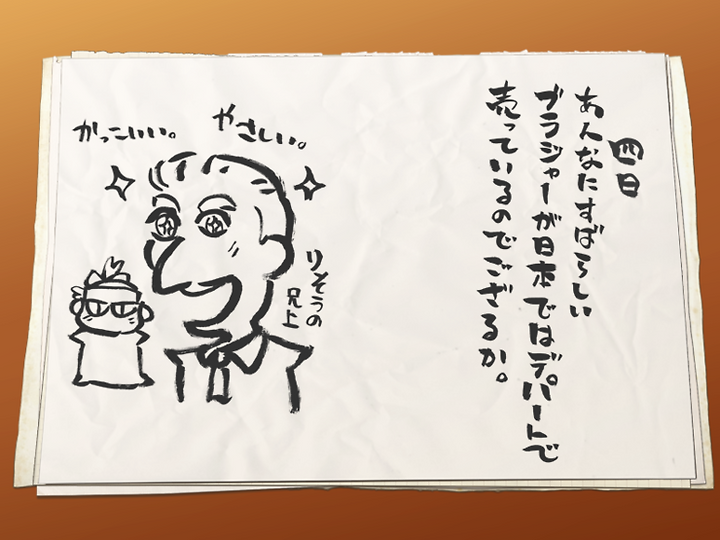 四日
あんなにすばらしい
ブラジャーが日本ではデパートで
売っているのでござるか。
やさしい。
かっこいい。
りそうの
兄上